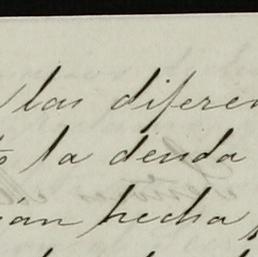 las diferen
la deuda
án hecha